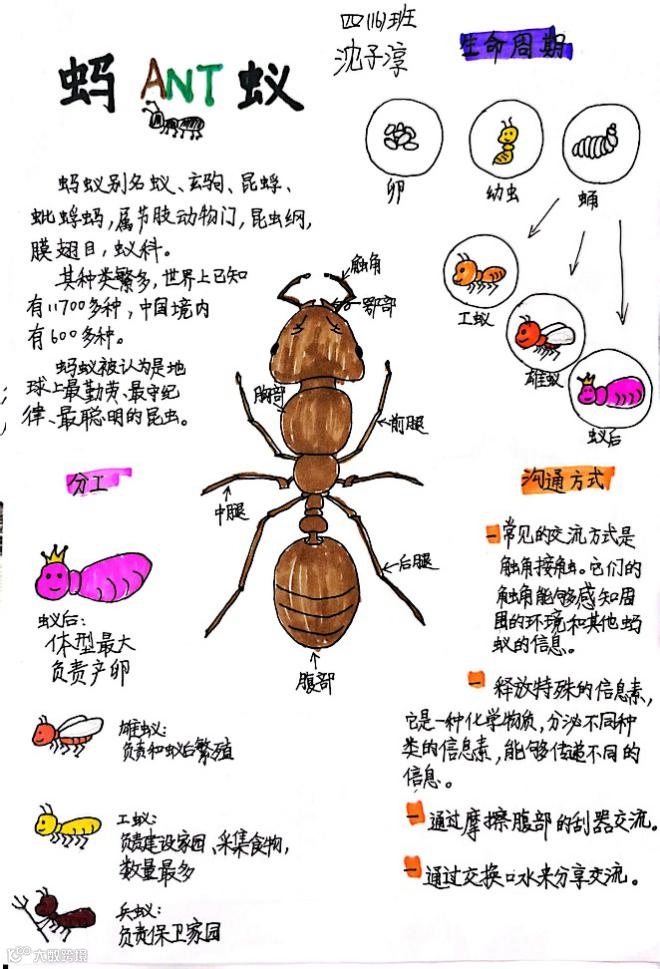 四(16)班
沈子淳
蚂ANT蚁
蚂蚁别名蚁、玄驹、昆蜉、
蚍蜉蚂,属节肢动物门,昆虫纲,
膜翅目,蚁科。
其种类繁多,世界上已知
有11700多种,中国境内
有600多种。
蚂蚁被认为是地
球上最勤劳、最守纪
律、最聪明的昆虫。
生命周期
卵
幼虫
蛹
工蚁
雄蚁
蚁后
触角
鄂部
胸部
前腿
中腿
后腿
腹部
分工
蚁后:
体型最大
负责产卵
雄蚁:
负责和蚁后繁殖
工蚁:
负责建设家园、采集食物,
数量最多
兵蚁:
负责保卫家园
沟通方式
常见的交流方式是
触角接触。它们的
触角能够感知周
围的环境和其他蚂
蚁的信息。
释放特殊的信息素,
它是一种化学物质,分泌不同种
类的信息素,能够传递不同的
信息。
通过摩擦腹部的刮器交流。
通过交换口水来分享交流。
大数跨境